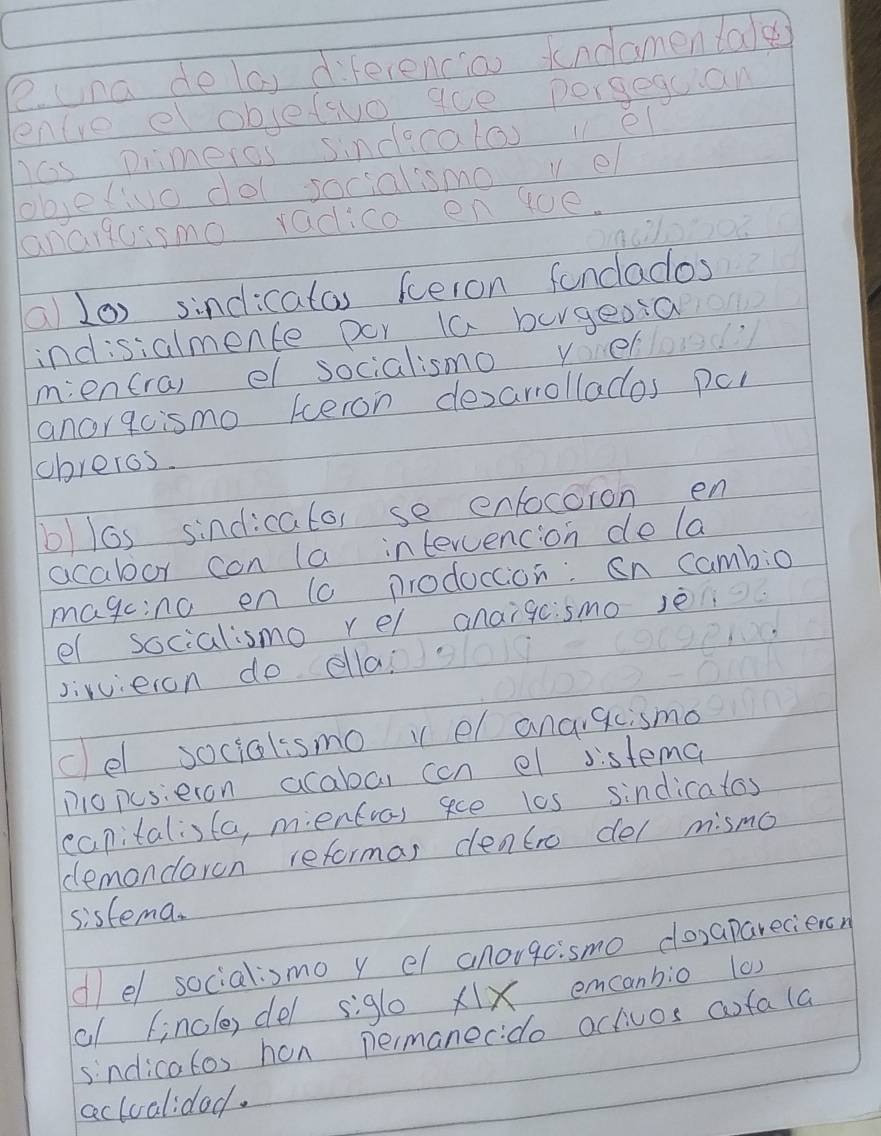 2. una de las diferencias fundamentales
entre el objetivo que persegu.an
los primeros sindicatos y el
objetivo del socialismo y el
anarquismo radica en que.
a) Los sindicatos fueron fundados
indisialmente por la burgesia
mientras el socialismo y el
anarquismo fueron desarrollados por
obreros.
b) los sindicatos se enfocoron en
acabar con la intervencion de la
maquina en la produccion. En cambio
el socialismo y el anarquismo se
sirvieron de ella.
c) el socialismo y el anarquismo
propusieron acabar con el sistema
capitalista, mientras que los sindicatos
demandaron reformas dentro del mismo
sistema.
d) el socialismo y el anorquismo desaparecieron
al finales del siglo XIX emcanbio los
sindicatos han permanecido activos asta la
actualidad.